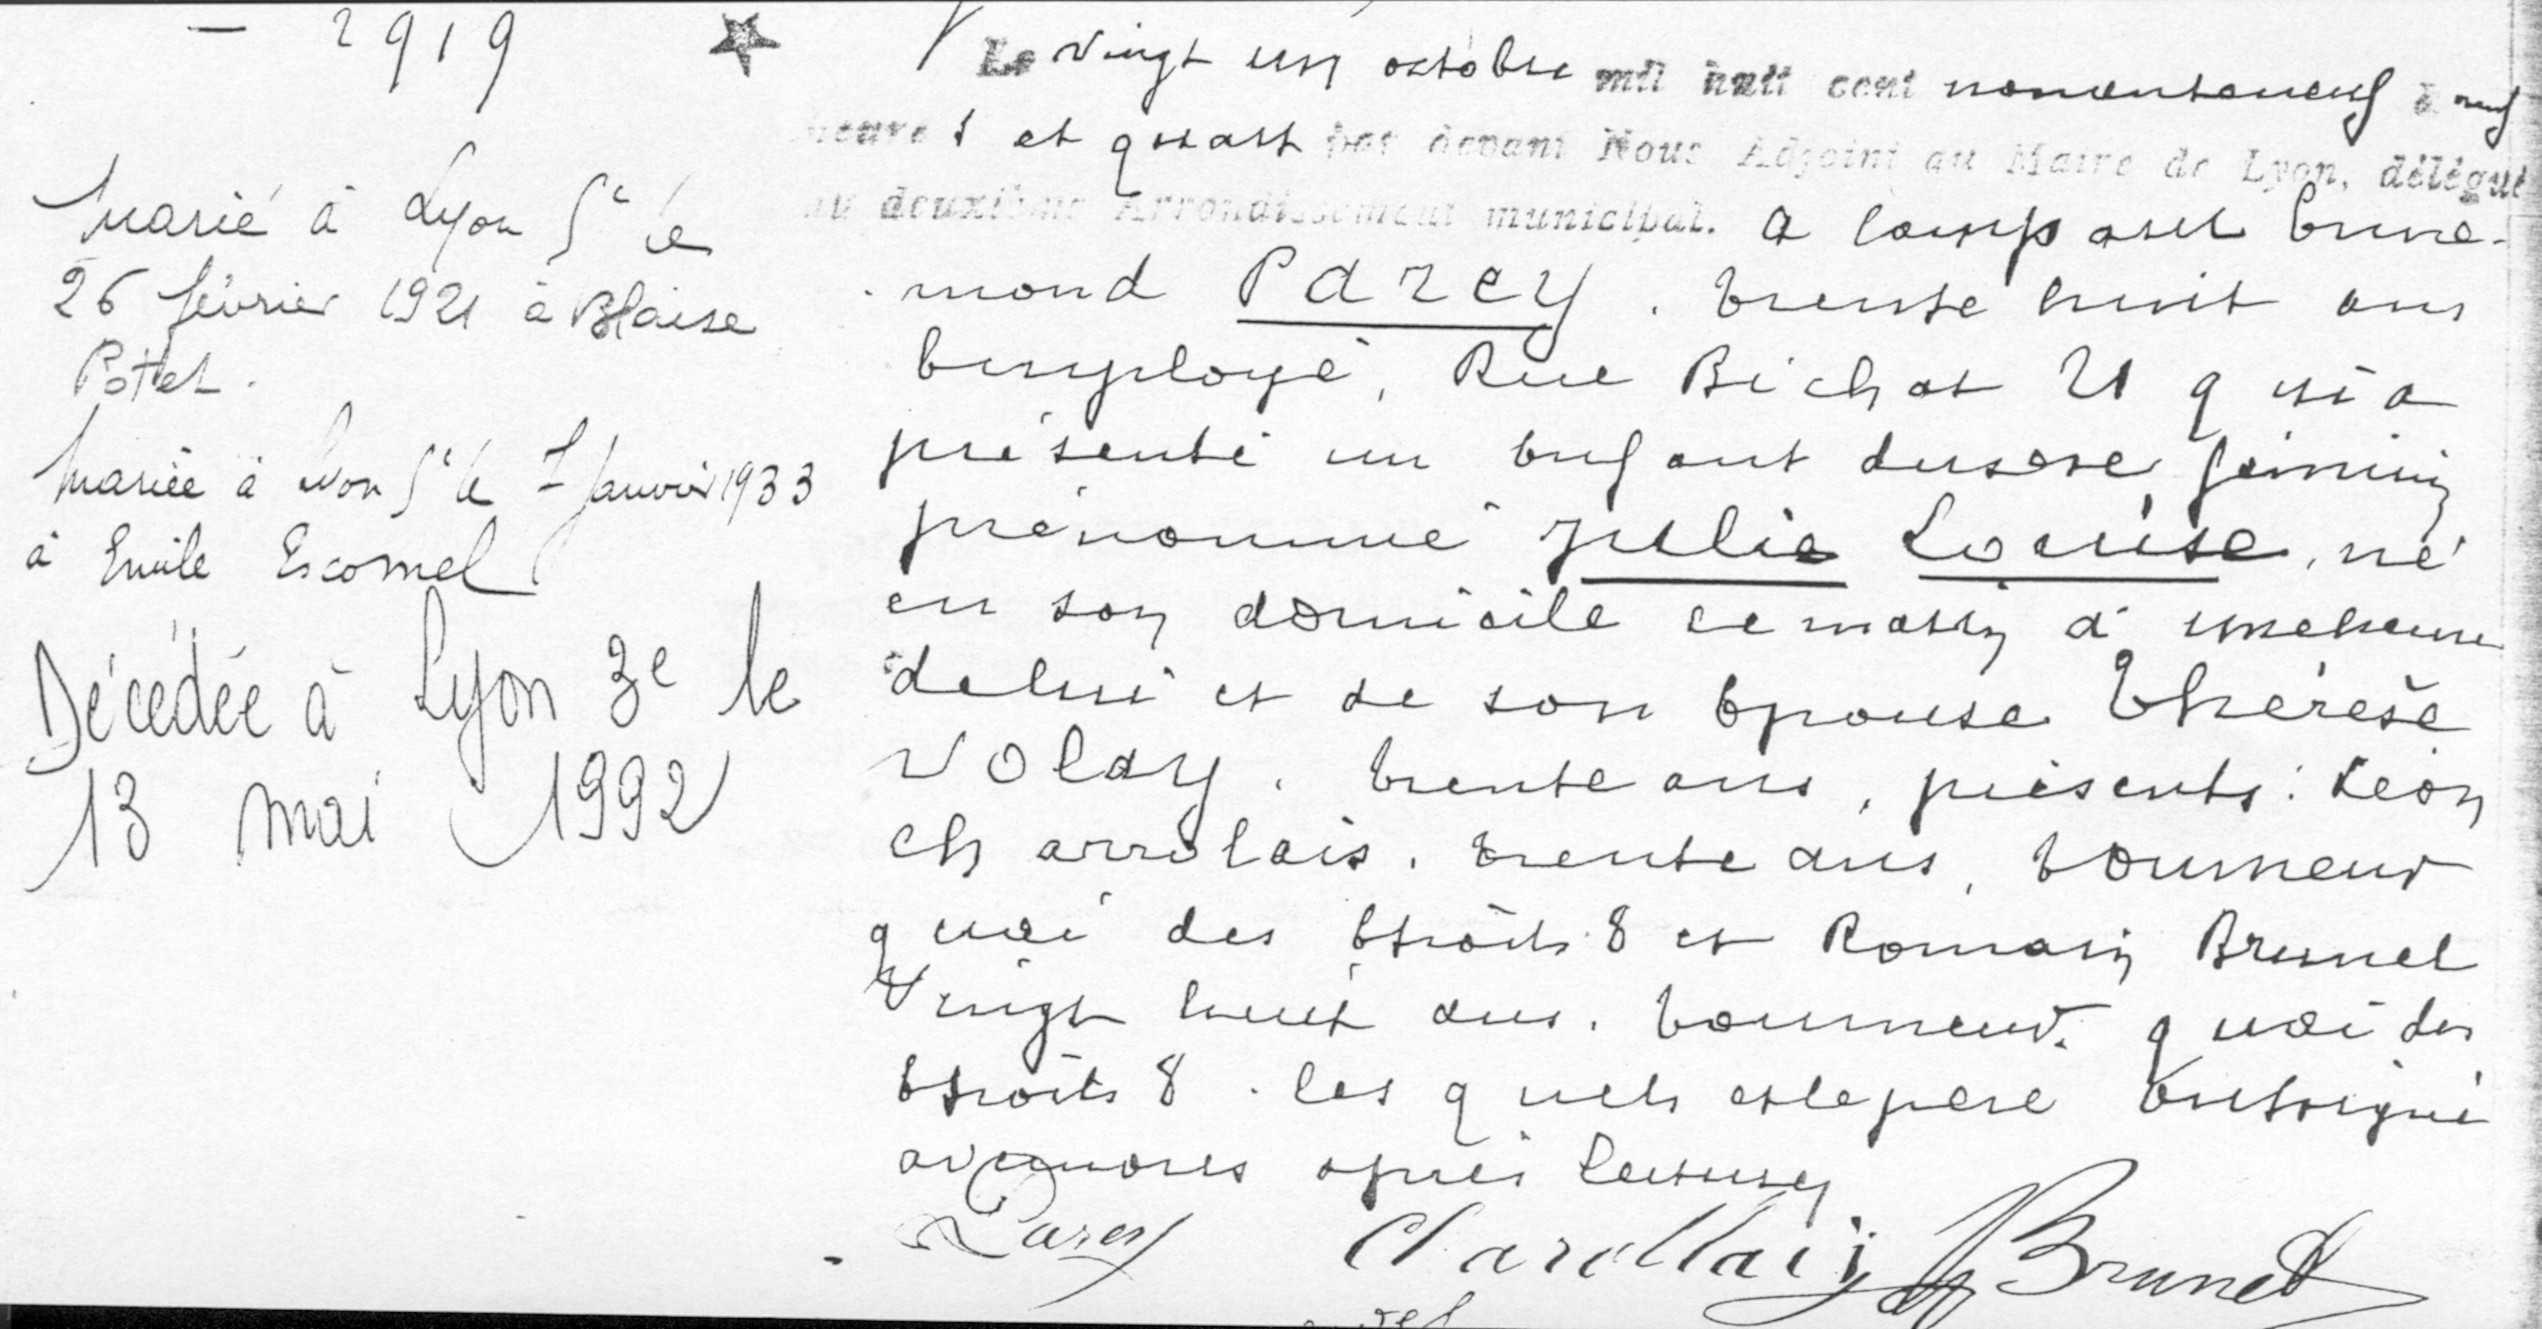 — 2919
Marié à Lyon 5e le
26 février 1921 à Blaise
Potet.
Mariée à Lyon 5e le 7 Janvier 1933
à Emile Escomel
Décédée à Lyon 3e le
13 mai 1992
Le vingt un octobre mil huit cent nonante neuf à neuf
heures et quart par devant Nous Adjoint au Maire de Lyon, délégué
au deuxième Arrondissement municipal. a comparu Enne-
mond Parey. trente huit ans
Employé, Rue Bichat 21 qui a
présenté un Enfant du sexe féminin
prénommé Julie Louise, né
en son domicile ce matin à une heure
de lui et de son Epouse Thérèse
Volay. trente ans, présents: Léon
Charrolais. trente ans, tourneur
quai des Etroits 8 et Romain Brunel
Vingt huit ans. tourneur. quai des
Etroits 8. lesquels et le père Ont signé
avec nous après lecture
Parey Charollais Brunel